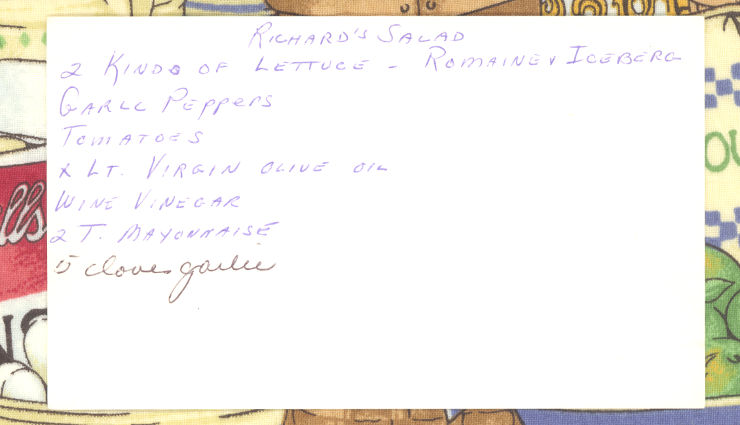 RICHARD'S SALAD
2 KINDS OF LETTUCE - ROMAINE & ICEBERG
GARLC PEPPERS
TOMATOES
X LT. VIRGIN OLIVE OIL
WINE VINEGAR
2 T. MAYONNAISE
5 cloves garlic